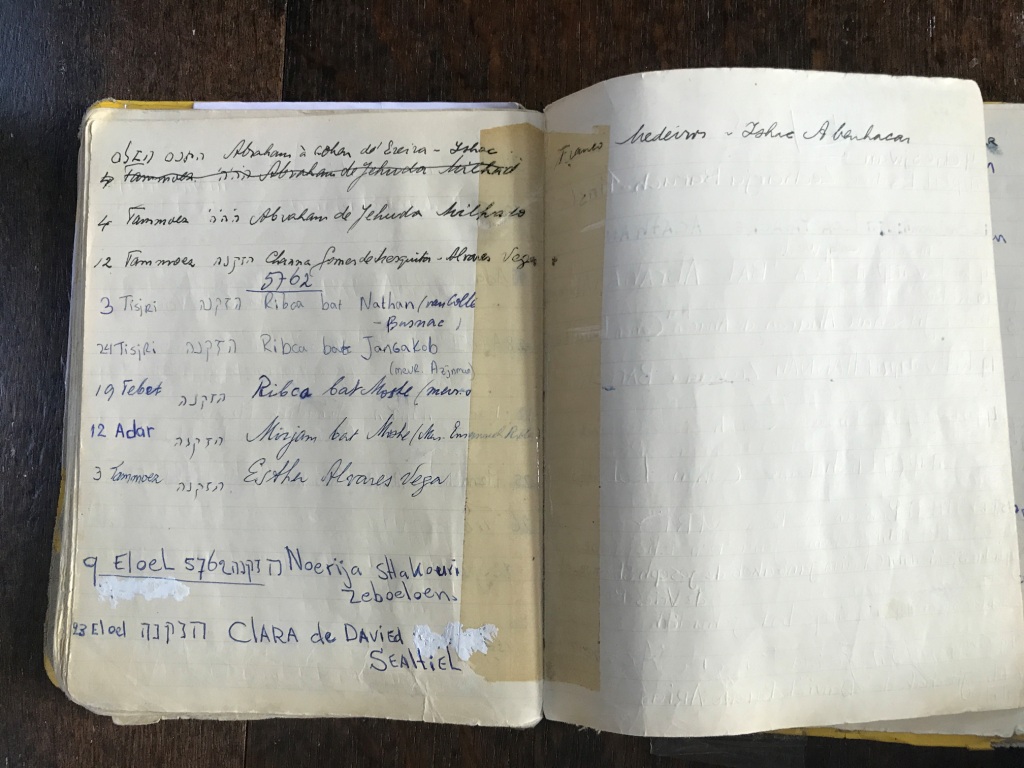 Abraham a Cohen d' Ereira - Ishac
4 Tammoez Abraham de Jehuda
4 Tammoez ה'ה' Abraham de Jehuda
12 Tammoez הזקנה Channa Gomes de Mesquita - Alvares Vega
5762
3 Tisjri הזקנה Ribca bat Nathan (van Collé
- Busnac)
24 Tisjri הזקנה Ribca bat Jangakob
(mevr. Azijnman
19 Tebet הזקנה Ribca bat Moshe (mevr.
12 Adar הזקנה Mirjam bat Moshe
3 Tammoez הזקנה Esther Alvares Vega
9 Eloel 5762 הזקנה Noerija Shakouri
Zeboeloen
23 Eloel הזקנה CLARA de DAVIED
SEALTIEL
Franco Medeiros - Ishac Abenhacar